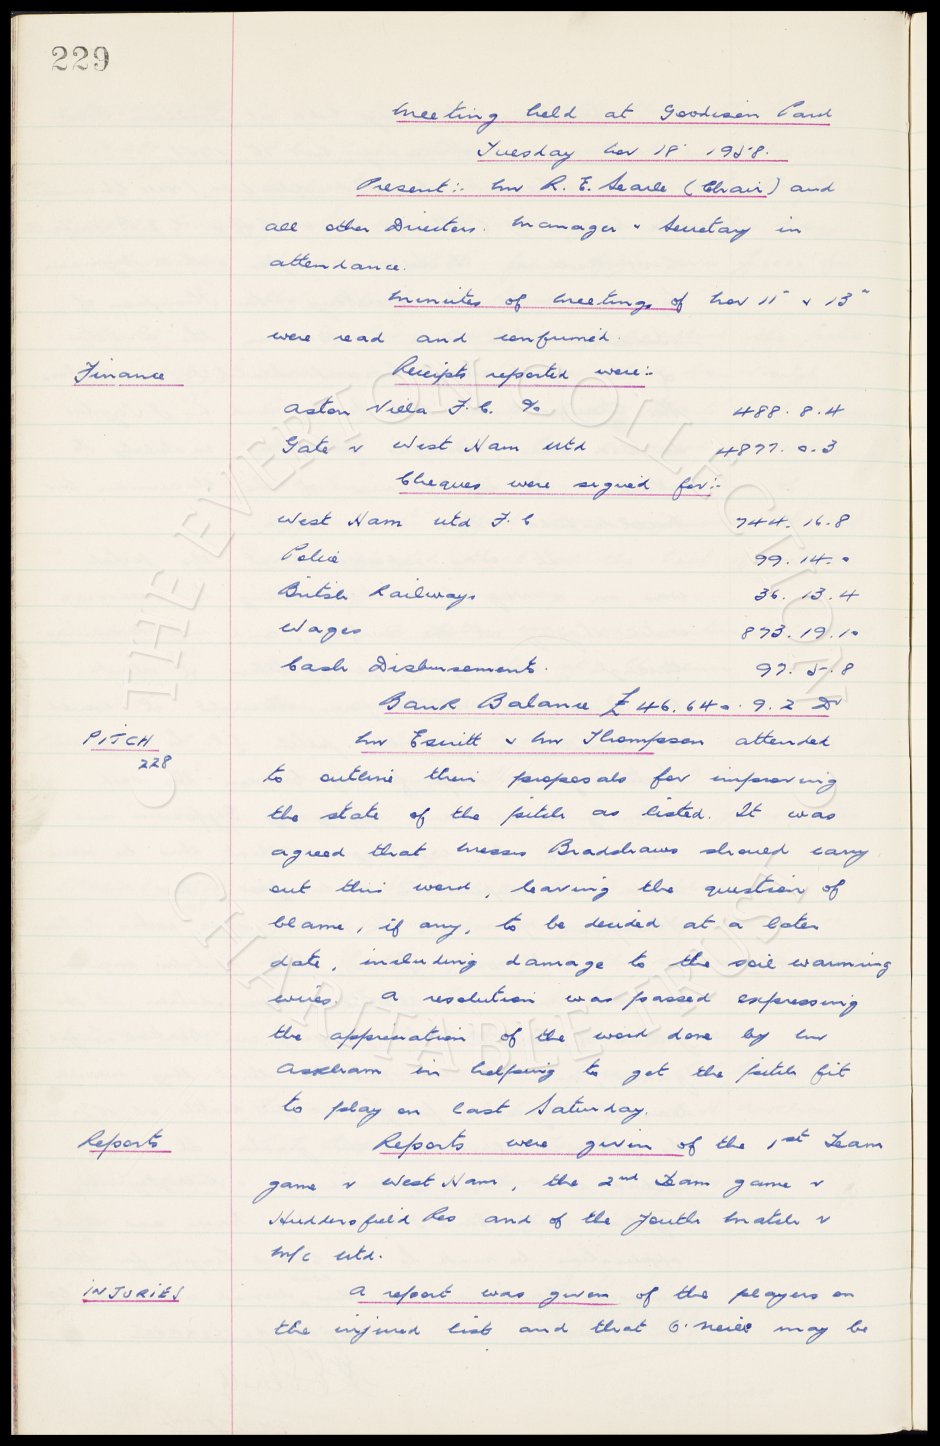 229
Meeting held at Goodison Park
Tuesday Nov 18th 1958.
Present:- Mr R. E. Searle (Chair) and
all other Directors. Manager & Secretary in
attendance.
Minutes of meetings of Nov 11th & 13th
were read and confirmed.
Finance
Receipts reported were:-
Aston Villa F.C. %
488. 8. 4
Gate v West Ham Utd
4877. 0. 3
Cheques were signed for:-
West Ham Utd F.C
744. 16. 8
Police
99. 14. 0
British Railways
36. 13. 4
Wages
873. 19. 10
Cash Disbursements.
97. 5. 8
Bank Balance £46,640. 9. 2 Dr
PITCH
228
Mr Escritt & Mr Thompson attended
to outline their proposals for improving
the state of the pitch as listed. It was
agreed that Messrs Bradshaws should carry
out this work, leaving the question of
blame, if any, to be decided at a later
date, including damage to the soil warming
wires. A resolution was passed expressing
the appreciation of the work done by Mr
Askham in helping to get the pitch fit
to play on last Saturday.
Reports
Reports were given of the 1st Team
game v West Ham, the 2nd Team game v
Huddersfield Res and of the Youth Match v
M/c Utd.
INJURIES
A report was given of the players on
the injured list and that O'Neill may be
© THE EVERTON COLLECTION
CHARITABLE TRUST